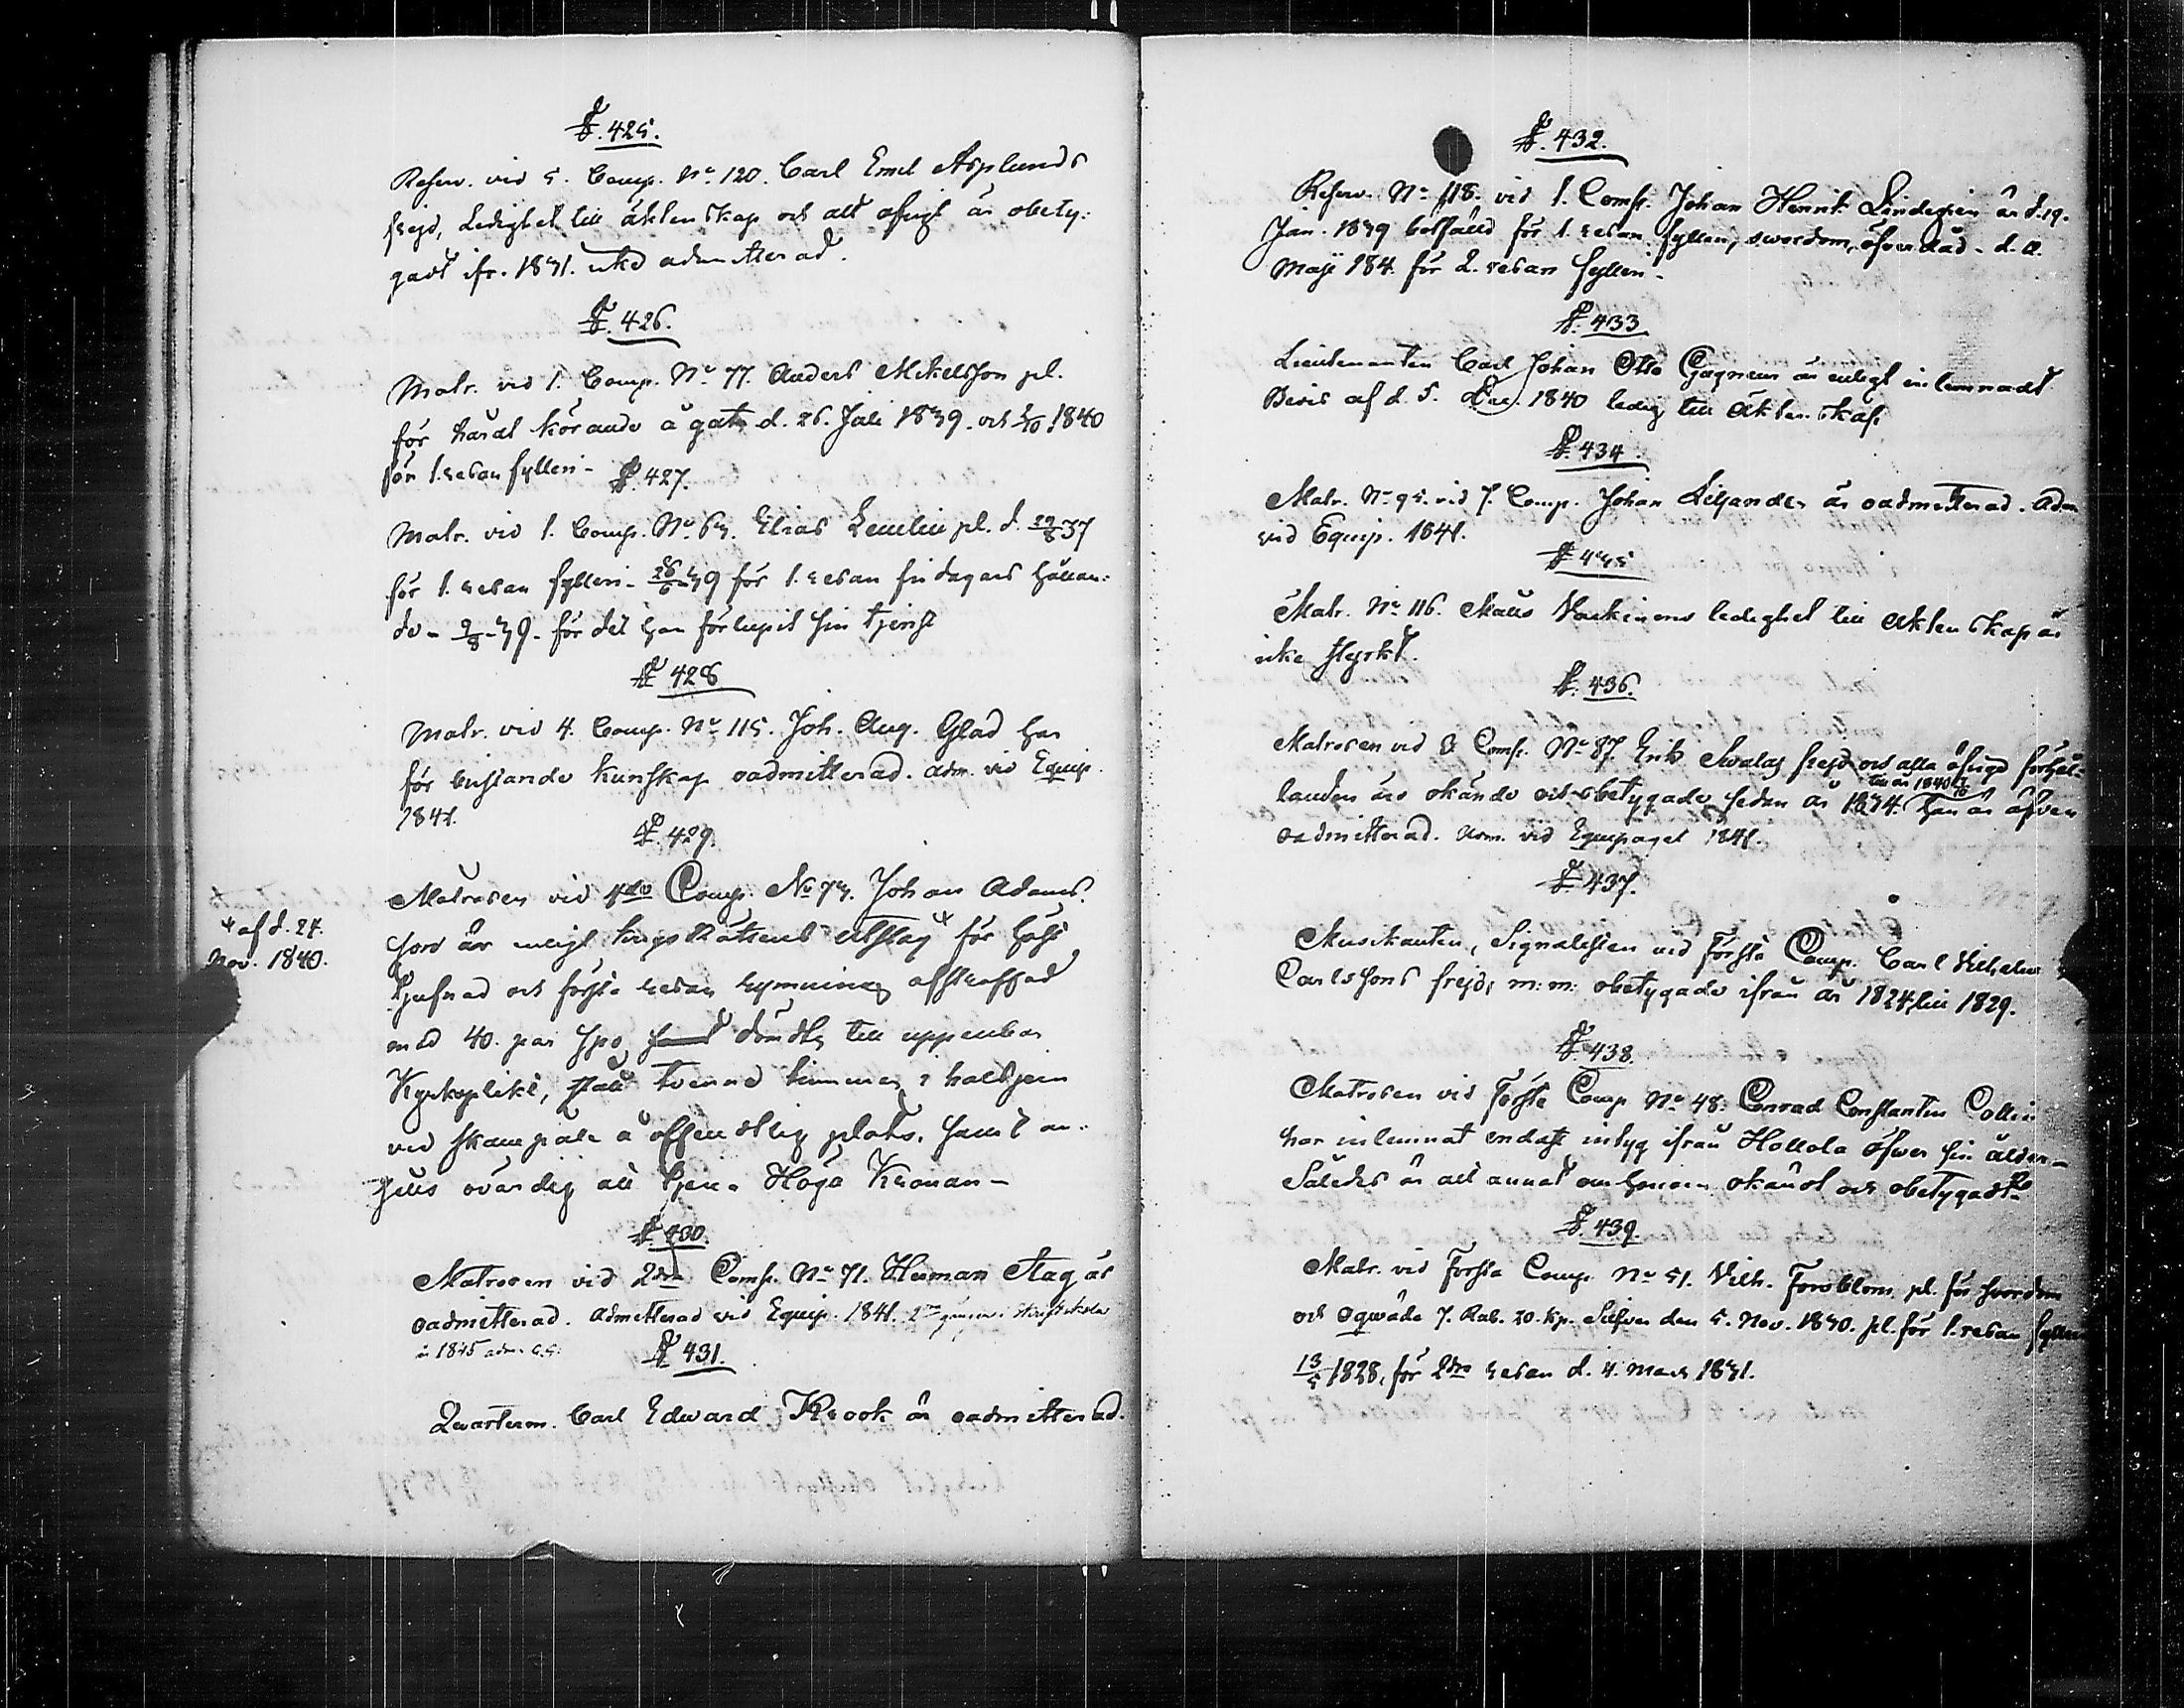 §. 425.
Reserv. vid 5. Comp. No. 120. Carl Emil Asplunds
frejd, Ledighet till äktenskap och allt öfrigt är obety-
gadt ifr. 1831. icke admitterad.
§. 426.
Matr. vid 1. Comp. No. 77. Anders Mickelsson pl.
för hårdt körande å gata d. 26. Juli 1839. och 1840
för 1. resan fylleri-
§. 427.
Matr. vid 1. Comp. No. 63. Elias pl. d. 37
för 1. resan fylleri- 39 för 1. resan
de - 9/8 39. för det han förlupit sin tjenst
§ 428
Matr. vid 4. Comp. No. 115. Joh. Aug. Glad har
för bristande kunskap oadmitterad. adm. vid Equip.
1841.
§ 429.
Matrosen vid 4de Comp. No. 73. Johan Adams-
son är enligt krigsrättens utslag för
tjufnad och första resan rymning afstraffad
med 40. par spö dömdts till uppenbar
Kyrkoplikt, stått tvenne timmar i halsjern
vid skampåle å offentlig plats, samt an-
ses ovärdig att tjena Höga Kronan -
+ af d. 27.
Nov. 1840.
§. 430.
Matrosen vid 2dra Comp. No. 71. Herman Stag är
oadmitterad. Admitterad vid Equip. 1841.
§ 431.
Qvarterm. Carl Edward Krook är oadmitterad.
§. 432.
Reserv. No. 118. vid 1. Comp. Johan Henrik är d. 19.
Jan. 1839 bötfälld för 1. resan fylleri, swordom,
Maji 184. för 2. resan fylleri-
§. 433
Lieutenanten Carl Johan Otto är enligt inlemnadt
Bevis af d. 5. Dec. 1840 ledig till Äktenskap.
§. 434.
Matr. No. 95. vid 7. Comp. Johan Liljander är oadmitterad. Adm
vid Equip. 1841.
§ 435
Matr. No. 116. ledighet till Äktenskap är
icke styrkt.
§. 436.
Matrosen vid Comp. No. 87. Erik frejd och alla öfriga förhål-
landen äro okände och obetygade sedan år 1834. till år 1840 Han är äfven
oadmitterad. Adm. vid Equipaget 1841.
§ 437.
Musikanten, Signalisten vid Första Comp. Carl Vilhelm
Carlssons frejd, m: m: obetygade ifrån år 1824 till 1829.
§. 438.
Matrosen vid Första Comp No. 48. Conrad Constantin Collin
har inlemnat endast intyg ifrån Hollola öfver sin ålder-
Således är allt annat om honom okändt och obetygadt.
§. 439.
Matr. vid Första Comp. No. 51. Vilh. Forsblom, pl. för
och Oqväde 7. Rub. 20. Kp. Silfver den 5. Nov. 1830. pl. för 1. resan
13/5 1828, för 2dra resan d. 4. Mars 1831.